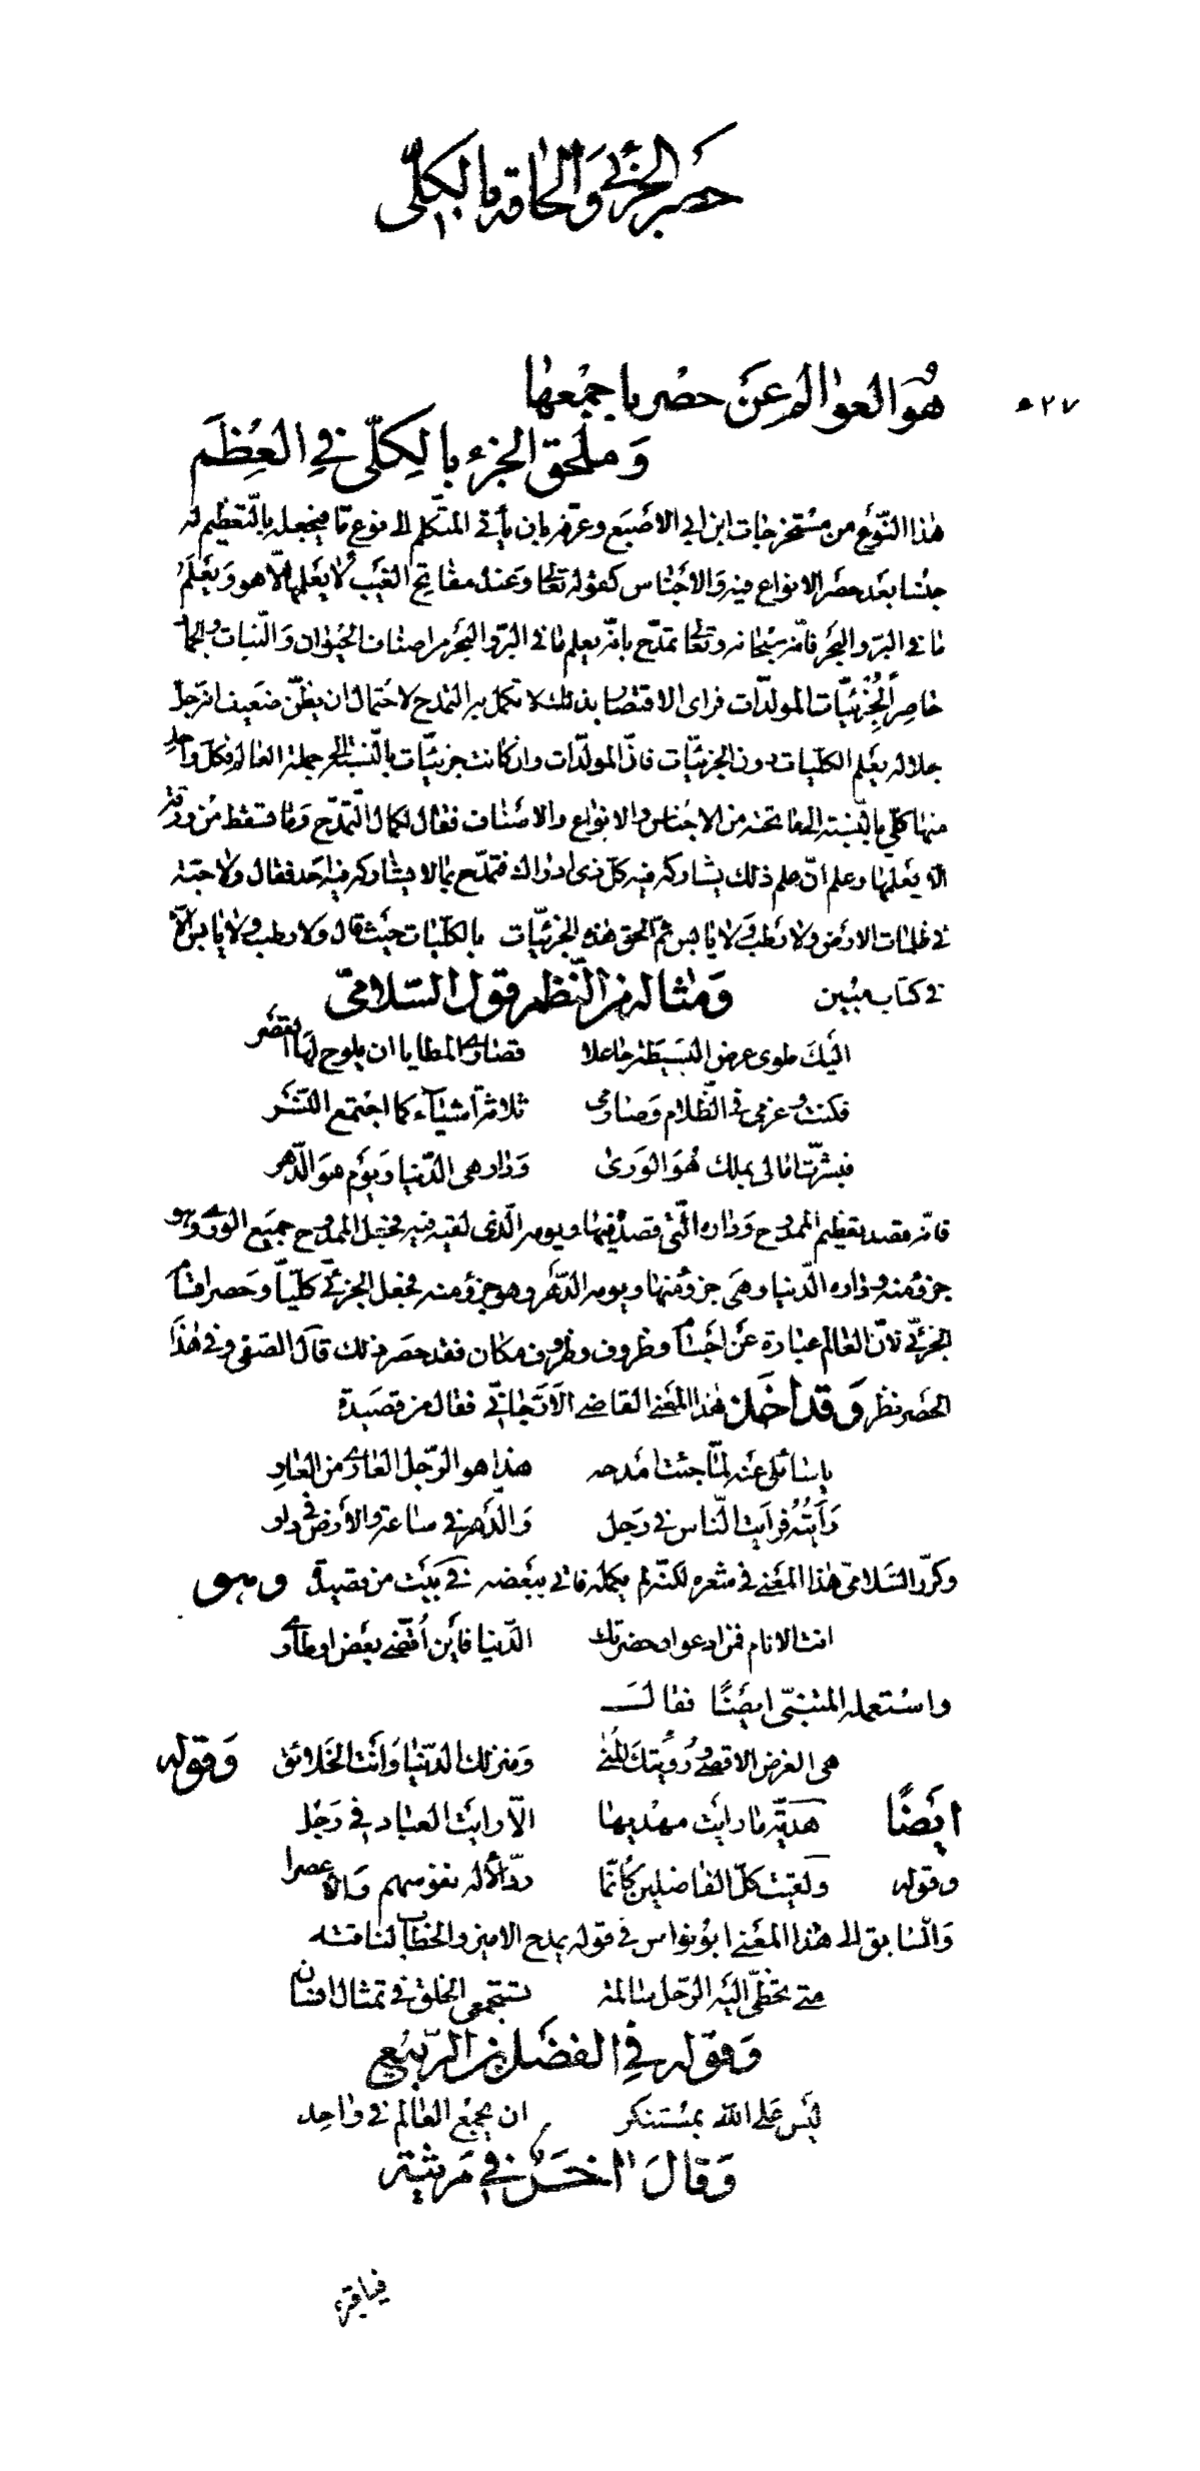 حصر الجزئي والحاقه بالكلّي
٥٢٧
هُوَ العوالم عَن حصْر باجمْعها
وَملحق الجزء بالكلّي في العِظَم
هٰذا النّوع من مستخرجات ابن ابي الاصبَع وعرّفه بان يأتي المتكلّم الى نوع مّا فيجعله بالتّعظيم له
جنسا بعَد حصَر الانواع فيه والاجناس كقوله تعالى وعنده مفاتح الغيَب لا يعَلمها الّا هو وَيعَلمُ
ما في البرّ والبحَر فانّه سبُحانه وتعالى تمدّح بانّه يعلم ما في البرّ والبحَر من اصناف الحيَوان وَالنّبات والجماد
حاصِر الجُزئيّات المولدّات فراى الاقتصار بذلك لا تكمل به التمدح لاحتمال ان يظنّ ضعَيف انه جلّ
جلاله يعَلم الكلّيات دون الجزئيّات فانّ المولدّات وان كانت جزئيّات بالنّسبة الى جملة العالم فكل واحد
منها كلّي بالنّسبة الى ما تحته من الاجناس والانواع والاصناف فقال لكمال التّمدّح وَما تسقط من ورقة
الا يعَلمها وعلم انّ علم ذلك يشاركه فيه كلّ ذى ادراك فتمدّح بمالا يشاركه فيه احَد فقال ولا حبّة
في ظلمات الارض ولا رطب ولا يابس ثمّ الحق هٰذه الجزئيّات بالكلّيات حيَث قال ولا رطب ولا يابس الّا
في كتاب مبُين وَمثاله من النّظم قول السّلاميّ
اليَك طوى عرض البسَيطة جاعلا قصارى المطايا ان يلوح لها القصر
فكنت وعزمي في الظّلام وَصارمي ثلاثة اشيَاء كما اجتمع النّسَر
فبشّرت امالى بملك هُوَ الورى وَدار هى الدّنيا وَيوَم هو الدّهر
فانّه قصد تعظيم الممدوح وَداره الّتي قصده فيها ويومه الّذى لقيه فيه فجعل الممدوح جميَع الورى وهو
جزؤ منه وداره الدّنيا وهَي جزؤ منها ويومه الدّهَر وهو جزؤ منه فجعل الجزئيّ كلّيّاً وَحصر اقسام
الجزئيّ لانّ العالم عبارة عَن اجَسام وظروف زمان وظروف مكان فقد حصر ذلك قال الصّفي وفي هٰذا
الحصَر نظر وَقد اخَذ هٰذا المعَنى القاضي الارّجانيّ فقال من قصَيدة
يا سائلى عنَه لمّا جئت امَدحه هذا هو الرّجل العاري من العار
رَأيَتُهُ فرايَت النّاس في رَجل وَالدّهَر في ساعة والارَض في دار
وكرّر السَلاميّ هٰذا المعَنى في شعره لكنّه لم يكمله فاتي ببعَضه في بيَت من قصيدة وهو
انت الانام فمن ادعو وحضرتك الدّنيا فاين اُقضّي بعَض اوطاري
واستعمله المتنبّي ايضًا فقالـ
هى الغرض الاقصى ورُؤيتك المنُى وَمنزلك الدّنيا وَانت الخلائق وَقوله
ايضًا هَديّة ما رايت مهديها الّا رايت العباد في رَجُل
وقوله ولقيت كلّ الفاضلين كأنّما ردّ الاله نفوسهم والاعصرا
وَالسّابق الى هٰذا المعَنى ابوُ نواس في قوله يمدح الامين والخطاب لناقته
متى تحطّى اليَه الرّحل سالمة تستجمعى الخلق في تمثال انسان
وَقوله في الفضَل بن الرّبيع
ليَس عَلى الله بمستنكر ان يجمع العالم في واحِد
وَقالَ اخَر في مَرثية
فيا قبر